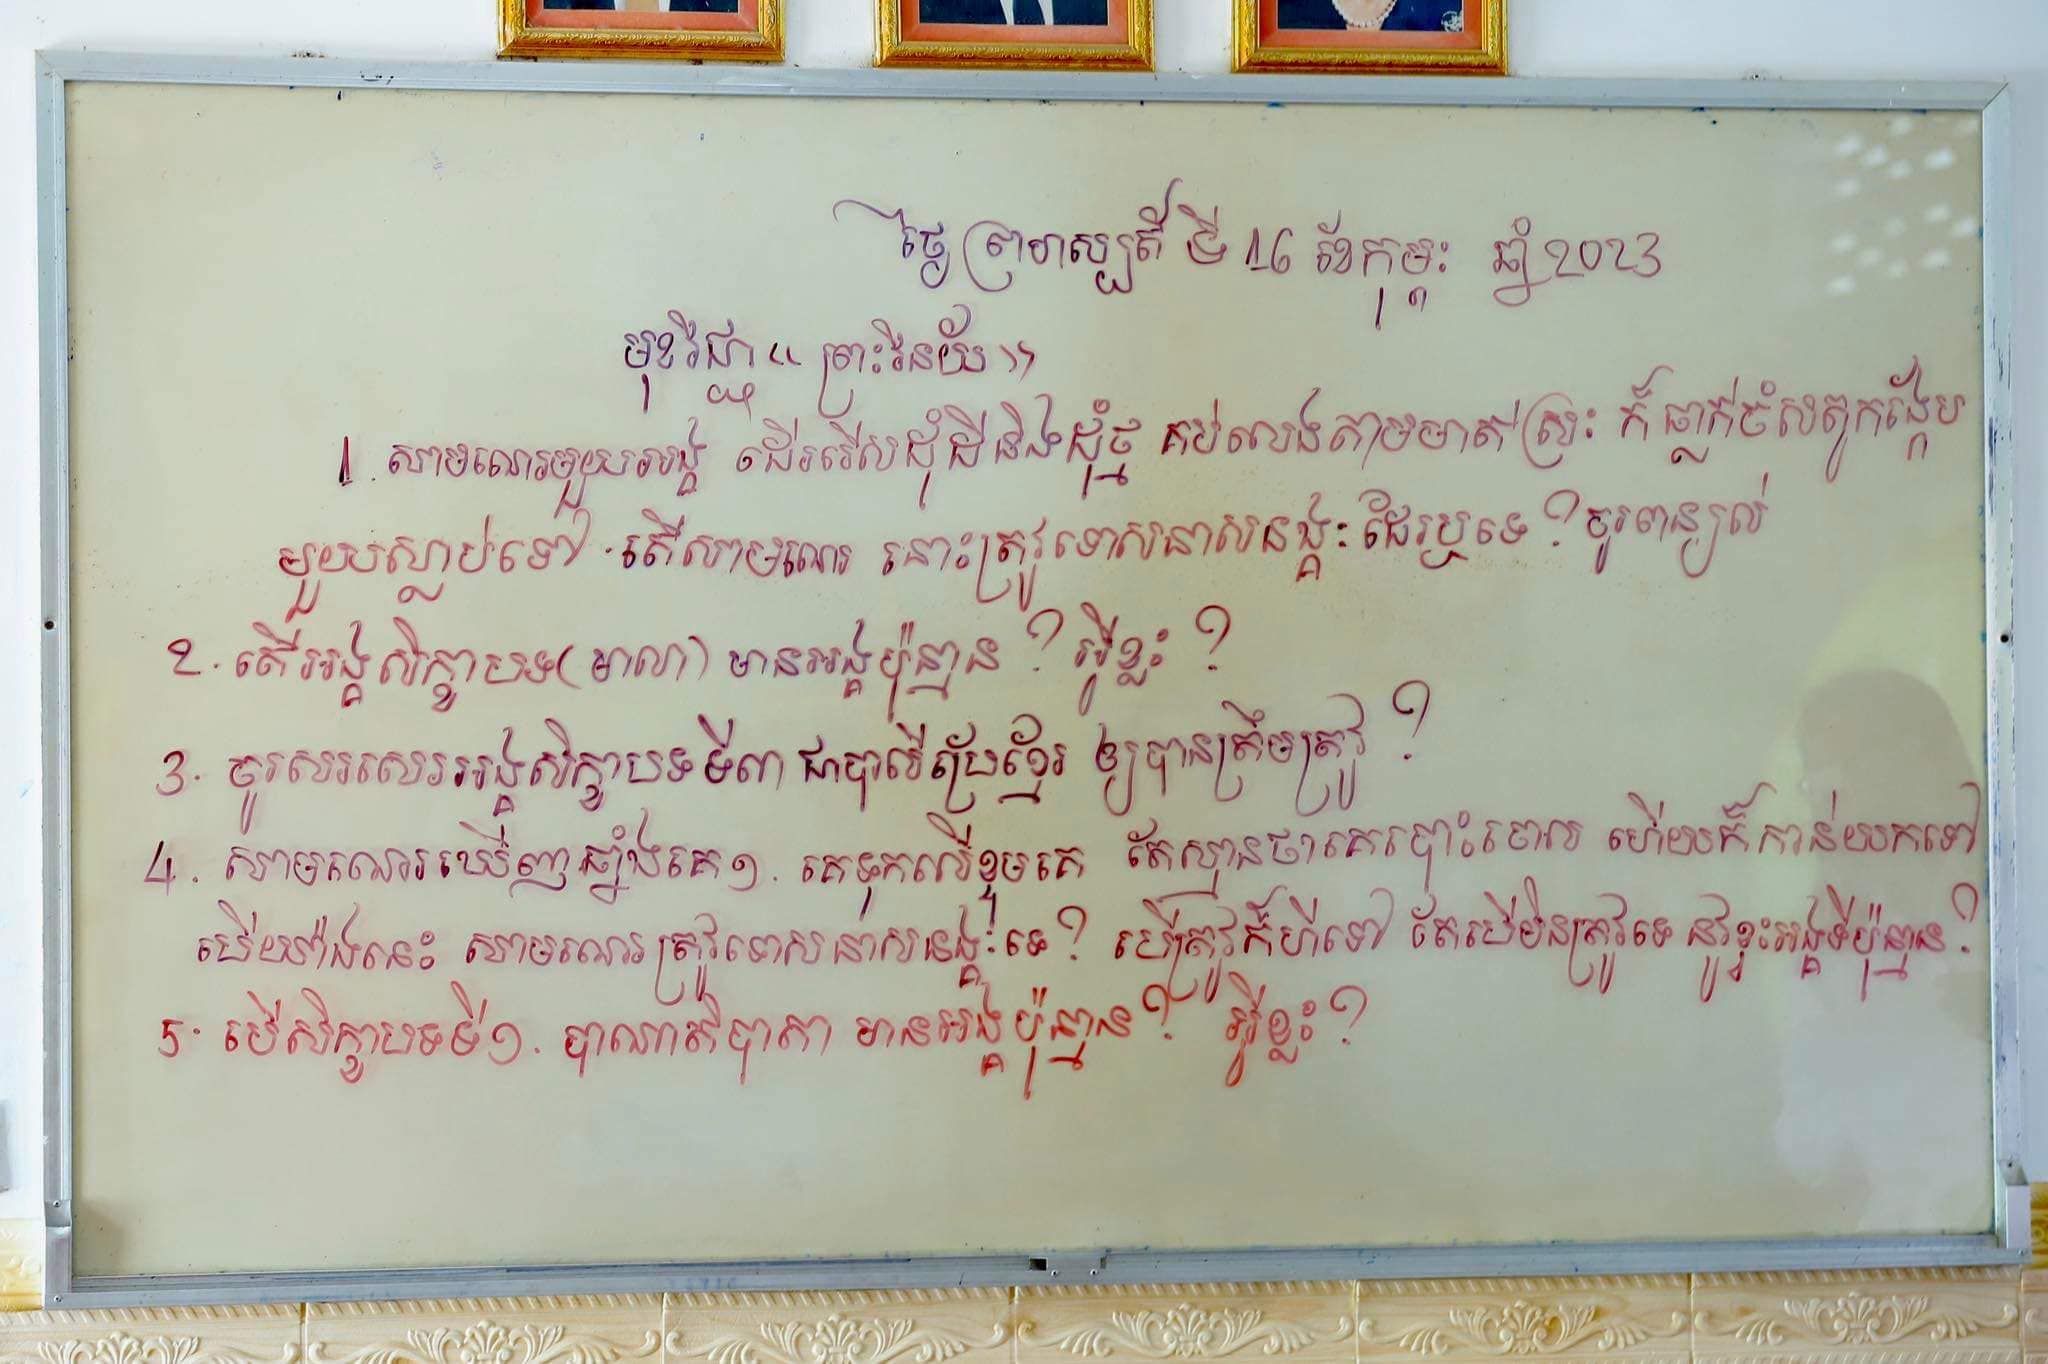 ថ្ងៃ ព្រហស្បតិ៍ ទី 16 ខែកុម្ភះ ឆ្នាំ 2023
មុខវិជ្ជា « ព្រះវិន័យ »
1. សាមណេរមួយអង្គ ដើររើសដុំដីនិងដុំថ្ម គប់លេងតាមមាត់ស្រះ ក៏ធ្លាក់ចំសត្វកង្កែប
មួយស្លាប់ទៅ . តើសាមណេរ នោះត្រូវទោសនាសនង្គៈដែរឬទេ? ចូរពន្យល់
2. តើអង្គសិក្ខាបទ (មាលា) មានអង្គប៉ុន្មាន? អ្វីខ្លះ?
3. ចូរសរសេរអង្គសិក្ខាបទទី៣ ជាបាលីប្រែខ្មែរ ឲ្យបានត្រឹមត្រូវ?
4. សាមណេរឃើញឆ្នាំងគេ១. គេទុកលើខ្ទមគេ តែស្មានថាគេបោះចោល ហើយក៏កាន់យកទៅ
បើយ៉ាងនេះ សាមណេរត្រូវទោសនាសនង្គៈទេ? បើត្រូវក៏ហីទៅ តែបើមិនត្រូវទេ នូវខ្វះអង្គទីប៉ុន្មាន?
5. បើសិក្ខាបទទី១. បាណាតិបាតា មានអង្គប៉ុន្មាន? អ្វីខ្លះ?